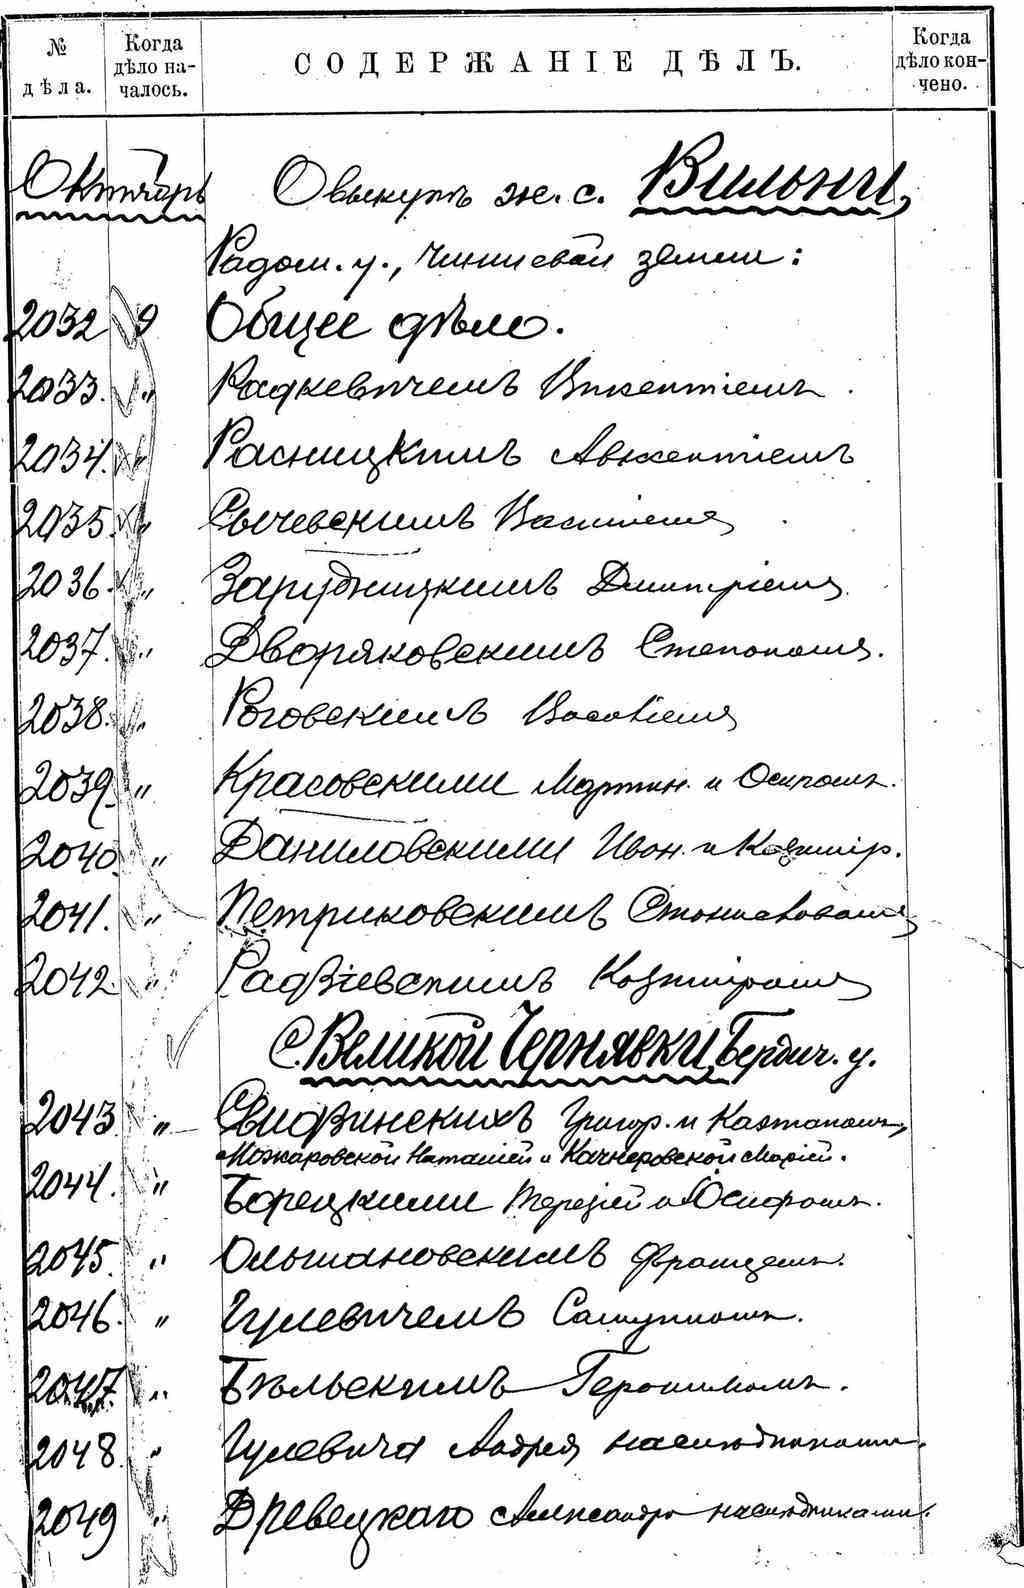 № дѣла. Когда дѣло началось. СОДЕРЖАНІЕ ДѢЛЪ. Когда дѣло кончено.
Октябрь О выкупѣ ж. с. Вильни,
Радом. у., чиншевой земли:
2032 9 Общее дѣло.
2033. " Радкевичемъ Викентіемъ.
2034. " Расницкимъ Авксентіемъ
2035. " Сычевскимъ Василіемъ
2036. " Зарудницкимъ Дмитріемъ
2037. " Дворяковскимъ Степаномъ.
2038. " Роговскимъ
2039. " Красовскими Мартин. и Осипомъ.
2040. " Даниловскими Иван. и Казимір.
2041. " Петриковскимъ Станиславомъ
2042. " Радзіевскимъ Казиміромъ
с. Великой Чернявки, Бердич. у.
2043 " Свидзинскихъ Григор. и Каэтаномъ,
Можаровской Наталіей и Качперовской Маріей.
2044. " Борецкими Терезіей и Іосифомъ.
2045. " Ольшановскимъ Францемъ.
2046. " Гулевичемъ
2047. " Бѣльскимъ Геронимомъ.
2048. " Гулевича Андрея наслѣдниками.
2049 " Древецкаго Александра наслѣдниками.